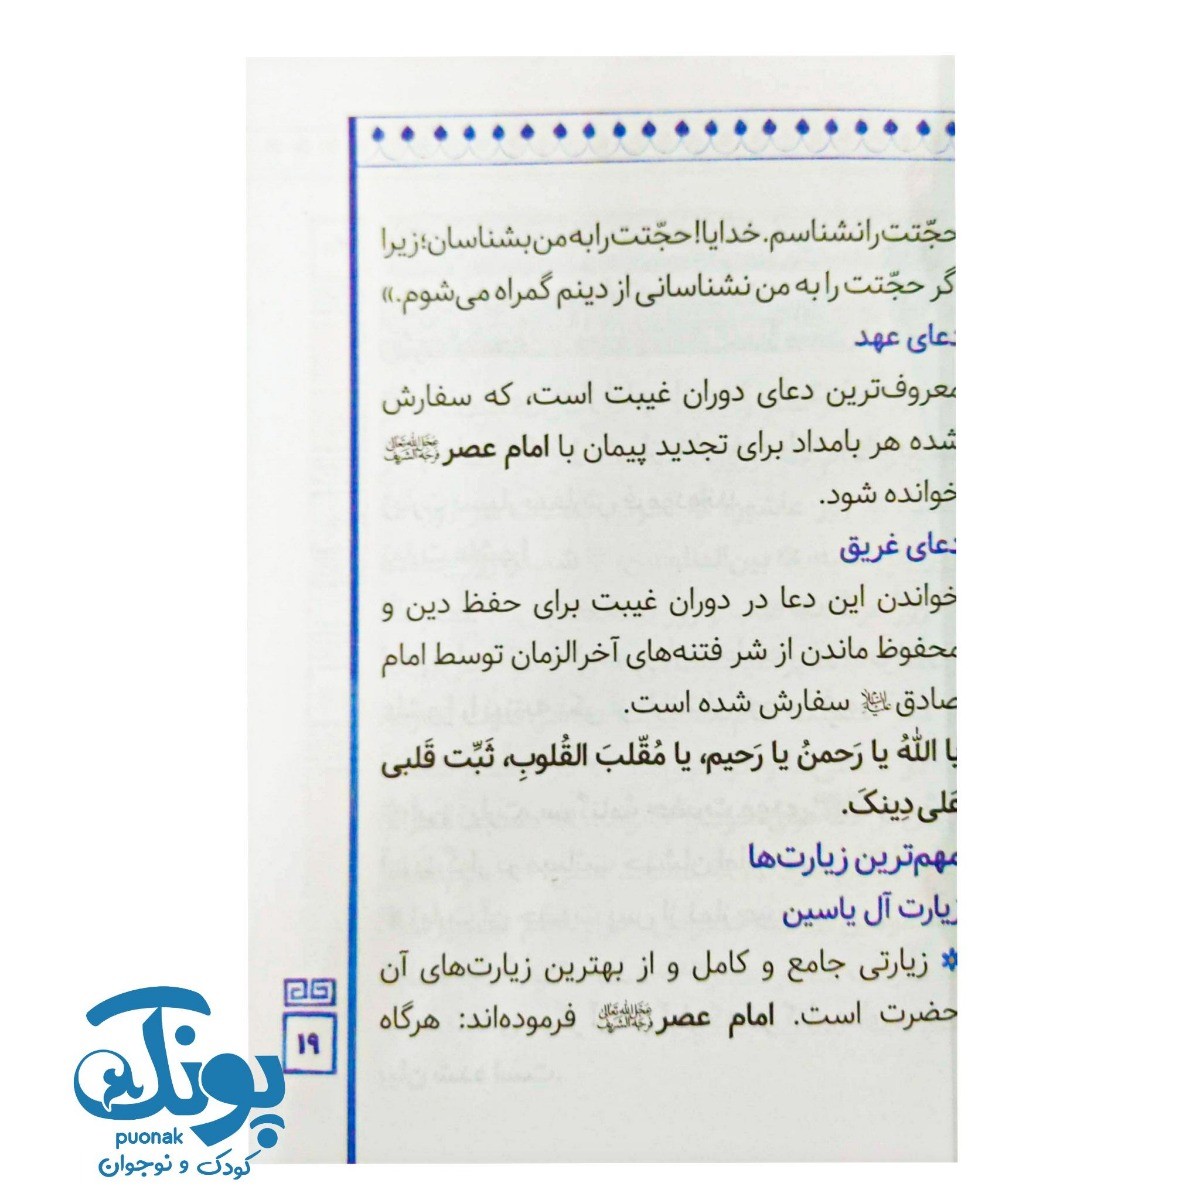 حجّتت را نشناسم. خدایا! حجّتت را به من بشناسان؛ زیرا
گر حجّتت را به من نشناسانی از دینم گمراه می‌شوم.»
دعای عهد
معروف‌ترین دعای دوران غیبت است، که سفارش
شده هر بامداد برای تجدید پیمان با امام عصر عَجَّلَ اللهُ تَعَالی فَرَجَهُ الشَّریف
خوانده شود.
دعای غریق
خواندن این دعا در دوران غیبت برای حفظ دین و
محفوظ ماندن از شر فتنه‌های آخرالزمان توسط امام
صادق علیه‌السلام سفارش شده است.
یا اللهُ یا رَحمنُ یا رَحیم، یا مُقّلبَ القُلوبِ، ثَبِّت قَلبی
عَلی دِینکَ.
مهم‌ترین زیارت‌ها
زیارت آل یاسین
* زیارتی جامع و کامل و از بهترین زیارت‌های آن
حضرت است. امام عصر عَجَّلَ اللهُ تَعَالی فَرَجَهُ الشَّریف فرموده‌اند: هرگاه
۱۹
پونک
puonak
کودک و نوجوان